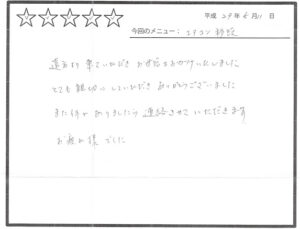 平成 29年 6月11日
今回のメニュー： エアコン移設
遠方より 来ていただき お世話をおかけいたしました
とても 親切に していただき ありがとうございました
また何か ありましたら 連絡させて いただきます
お疲れ様 でした